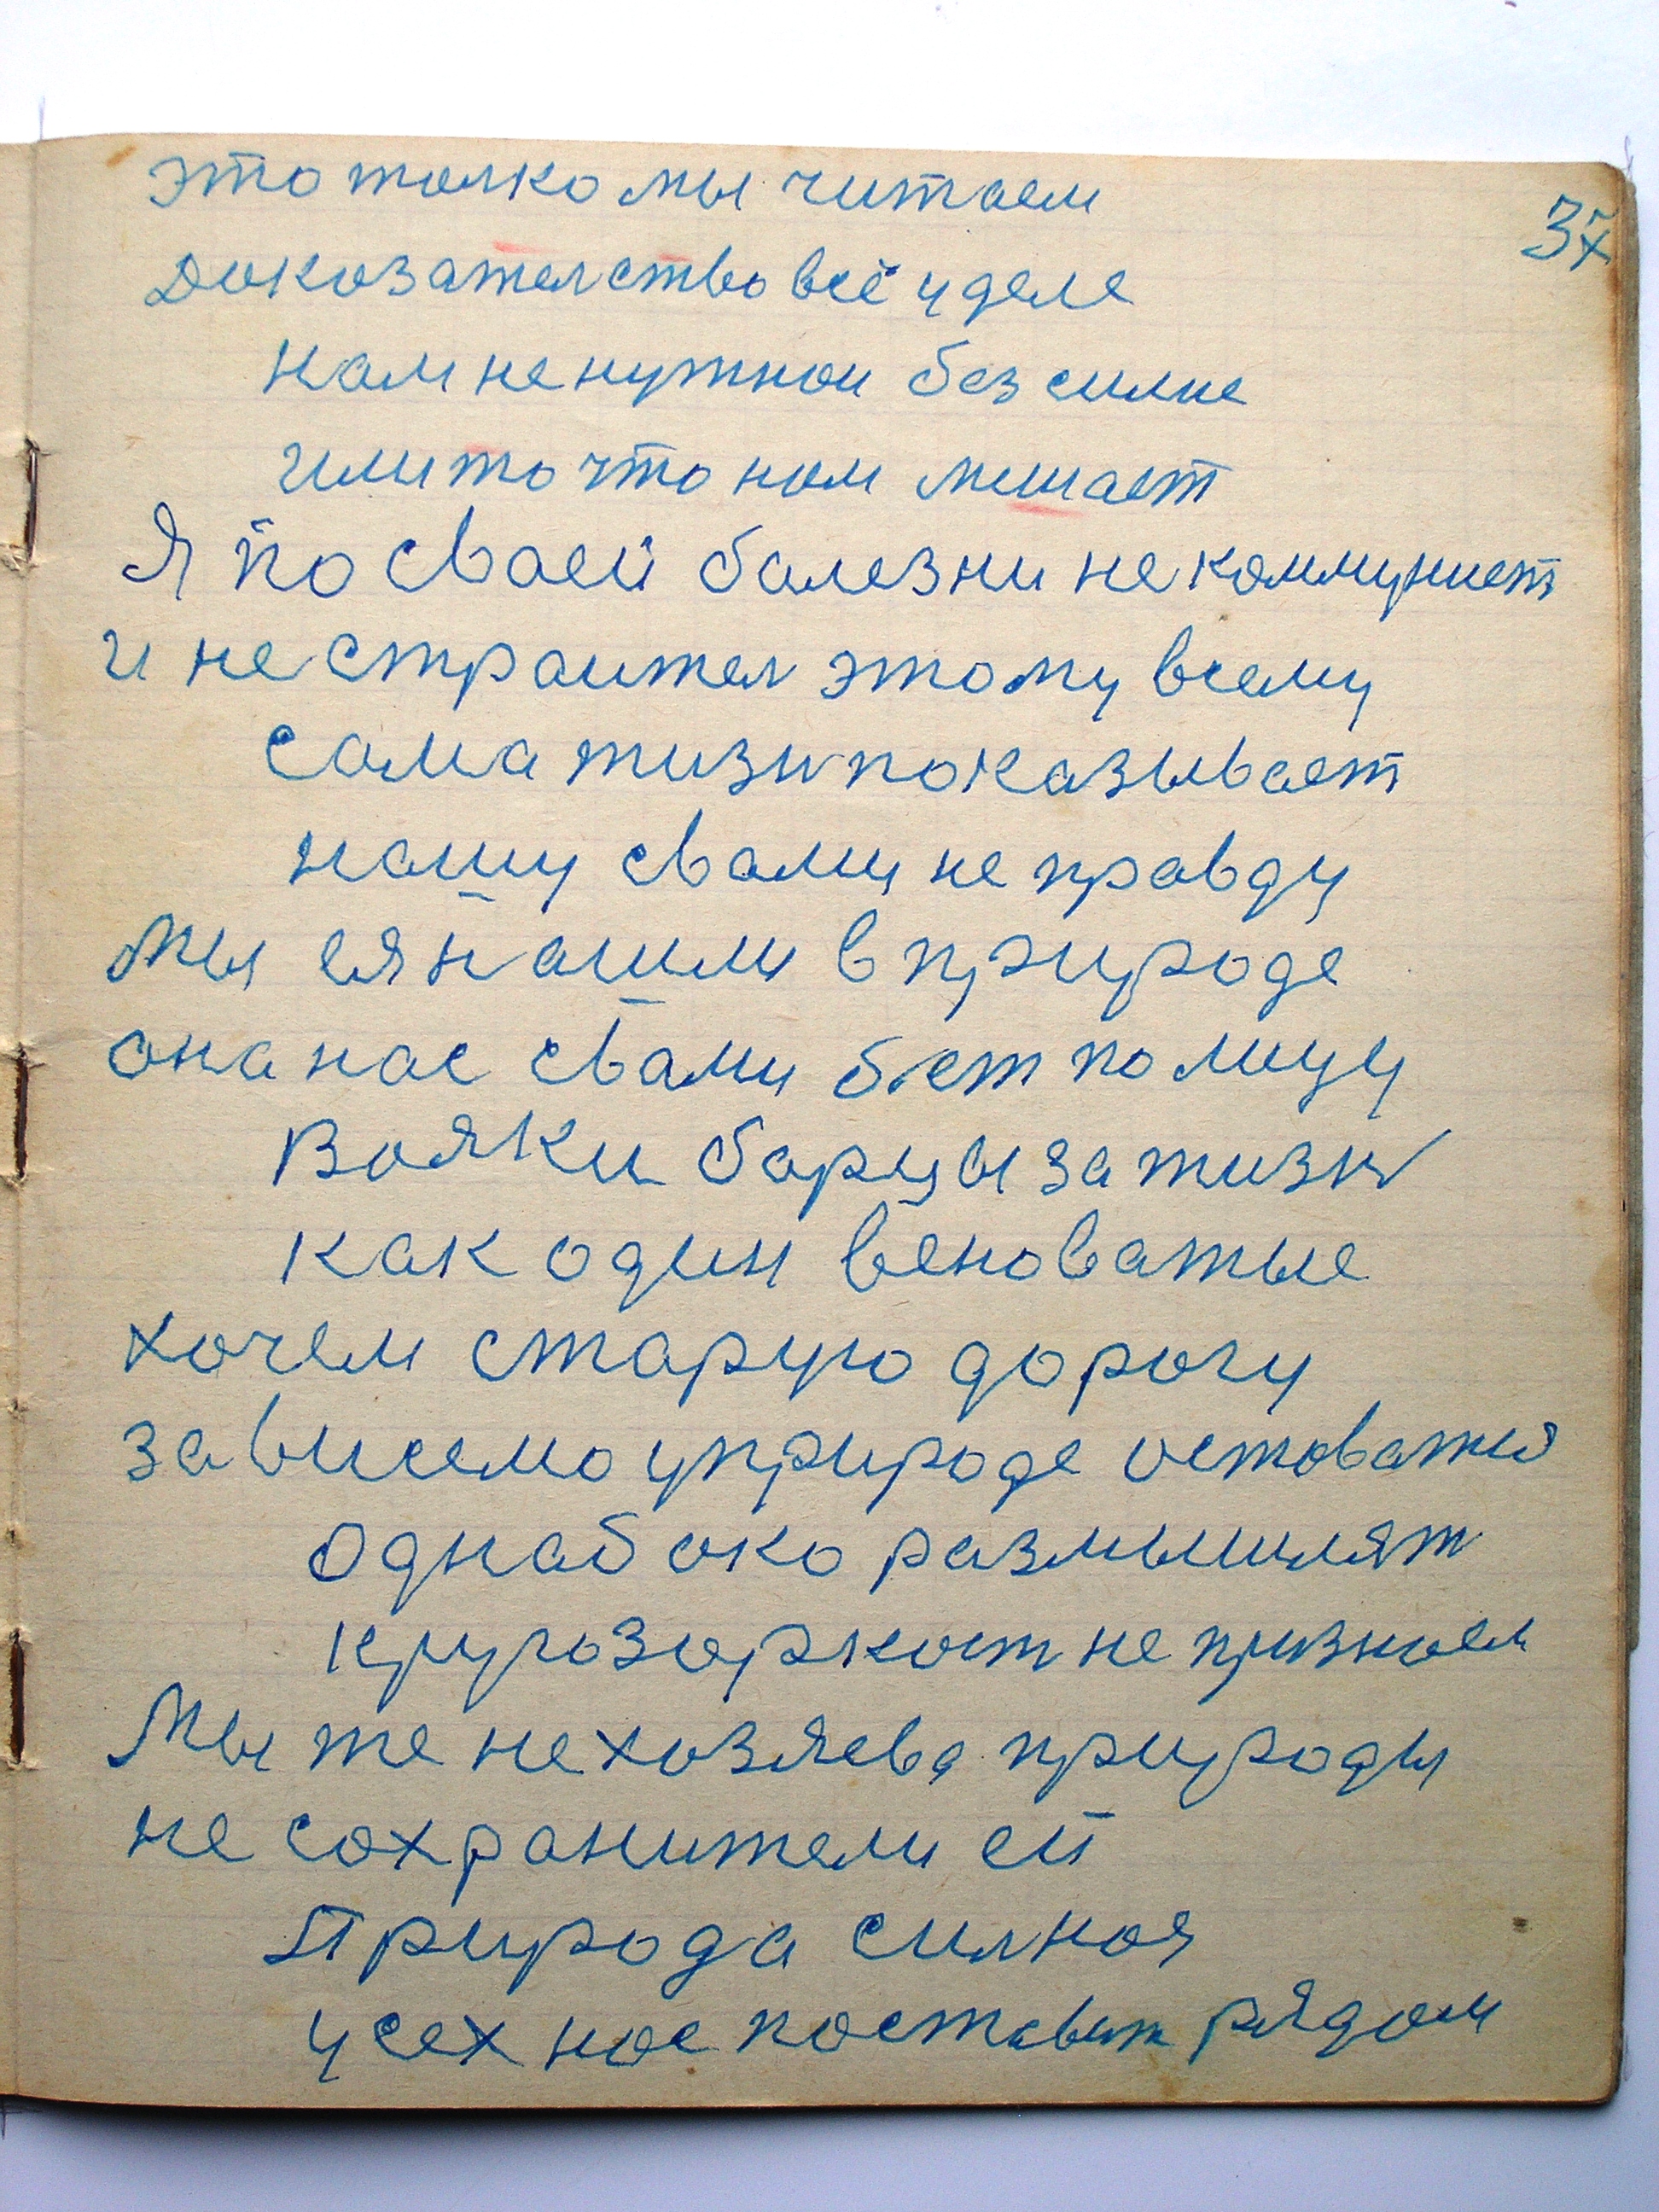 это толко мы читаем
37
Доказателство всё у деле
нам не нужной без силие
или то что нам мешает
Я по сваей балезни не коммунист
и не страител этому всему
сама жизн показывает
нашу свами не правду
Мы ея нашли в природе
она нас свами бет по лицу
Вояки барцы за жизн
как один веноватые
хочем старую дорогу
зависемо у природе оставатся
Однабоко размышлят
кругозоркост не признаем
Мы же не хозяева природы
не сохранители ей
Природа силная
усех нас поставит рядом